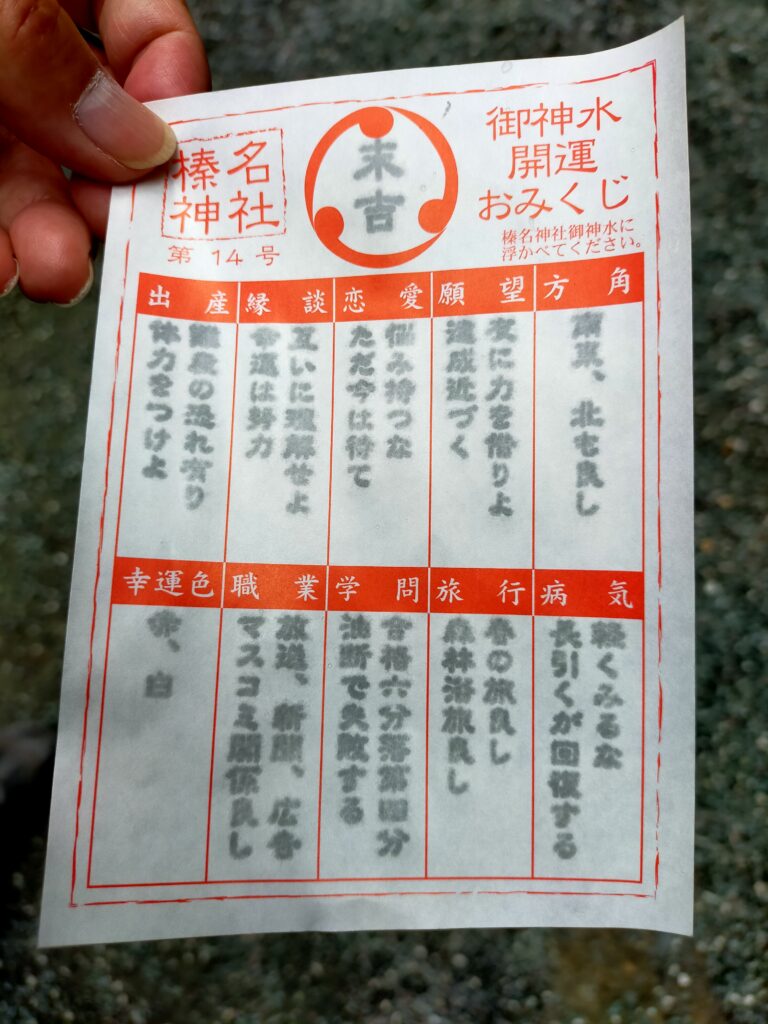 榛名
神社
第14号
末吉
御神水
開運
おみくじ
榛名神社御神水に
浮かべてください。
方角
南東、北も良し
願望
友に力を借りよ
達成近づく
恋愛
悩み持つな
ただ今は待て
縁談
互いに理解せよ
幸運は努力
出産
難産の恐れ有り
体力をつけよ
病気
軽くみるな
長引くが回復する
旅行
春の旅良し
森林浴旅良し
学問
合格六分落第四分
油断で失敗する
職業
放送、新聞、広告
マスコミ関係良し
幸運色
赤、白